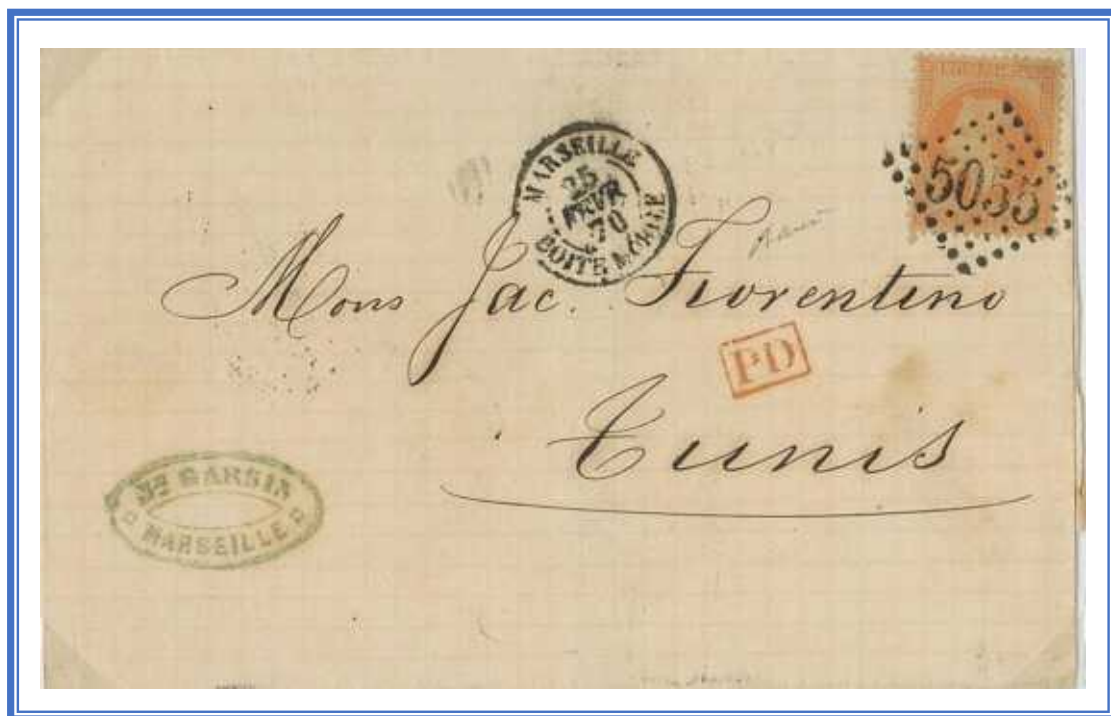 MARSEILLE
25
FEVR
70
BOITE MOBILE
5055
Mons Jac. Fiorentino
PD
Tunis
BARSIN
MARSEILLE